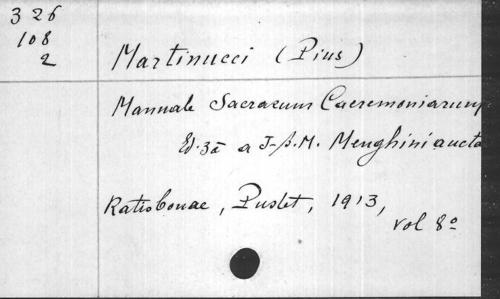 326
108
2
Martinucci (Pius)
Manuale Sacrarum Caeremoniarum
Ed. 3ā a J-B.M. Menghini aucta
Ratisbonae, Pustet, 1913,
vol 8º